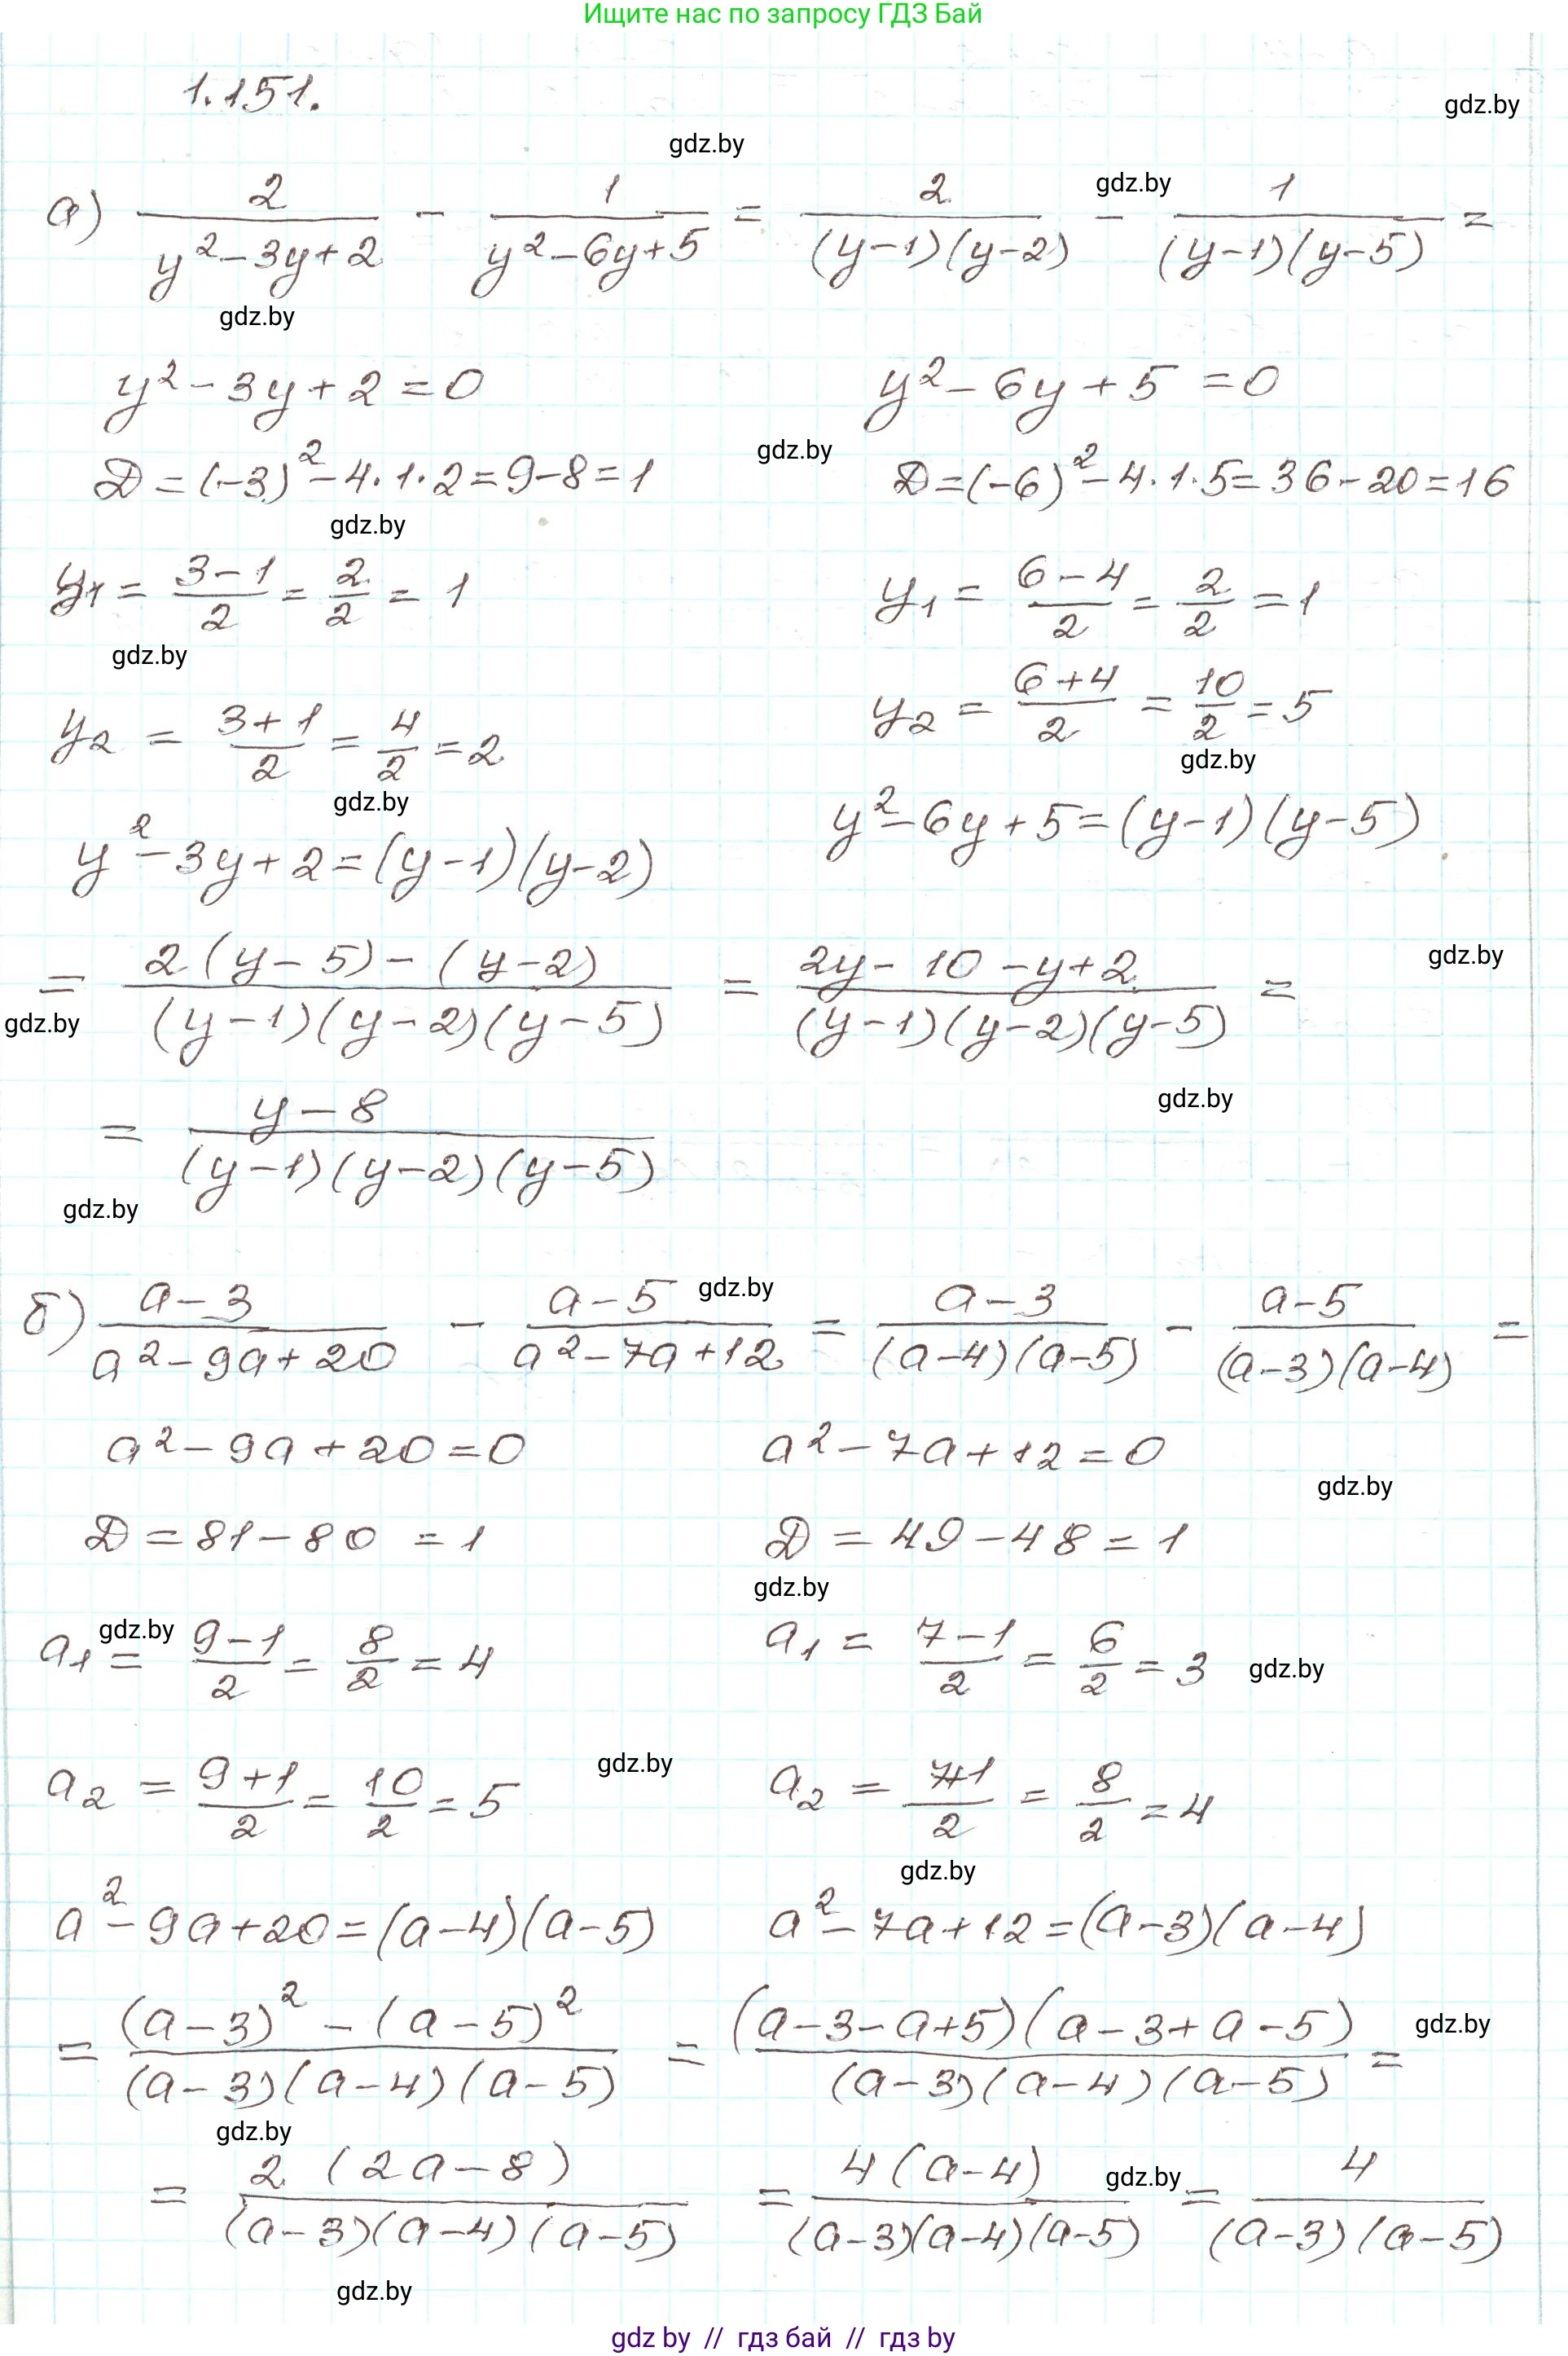 Ищите нас по запросу ГДЗ Бай
1.151.
gdz.by
gdz.by
gdz.by
а) 2/(y²-3y+2) - 1/(y²-6y+5) = 2/((y-1)(y-2)) - 1/((y-1)(y-5)) =
gdz.by
y²-3y+2=0 y²-6y+5=0
gdz.by
D=(-3)²-4·1·2=9-8=1 D=(-6)²-4·1·5=36-20=16
gdz.by
y₁=(3-1)/2=2/2=1 y₁=(6-4)/2=2/2=1
gdz.by
y₂=(3+1)/2=4/2=2 y₂=(6+4)/2=10/2=5
gdz.by
gdz.by
y²-3y+2=(y-1)(y-2) y²-6y+5=(y-1)(y-5)
gdz.by
= (2(y-5)-(y-2))/((y-1)(y-2)(y-5)) = (2y-10-y+2)/((y-1)(y-2)(y-5)) =
gdz.by
gdz.by
= (y-8)/((y-1)(y-2)(y-5))
gdz.by
gdz.by
б) (a-3)/(a²-9a+20) - (a-5)/(a²-7a+12) = (a-3)/((a-4)(a-5)) - (a-5)/((a-3)(a-4)) =
a²-9a+20=0 a²-7a+12=0
gdz.by
D=81-80=1 D=49-48=1
gdz.by
gdz.by
a₁=(9-1)/2=8/2=4 a₁=(7-1)/2=6/2=3
gdz.by
gdz.by
a₂=(9+1)/2=10/2=5 a₂=(7+1)/2=8/2=4
gdz.by
a²-9a+20=(a-4)(a-5) a²-7a+12=(a-3)(a-4)
gdz.by
= ((a-3)²-(a-5)²)/((a-3)(a-4)(a-5)) = ((a-3-a+5)(a-3+a-5))/((a-3)(a-4)(a-5)) =
gdz.by
gdz.by
= (2(2a-8))/((a-3)(a-4)(a-5)) = (4(a-4))/((a-3)(a-4)(a-5)) = 4/((a-3)(a-5))
gdz.by
gdz by // гдз бай // гдз by